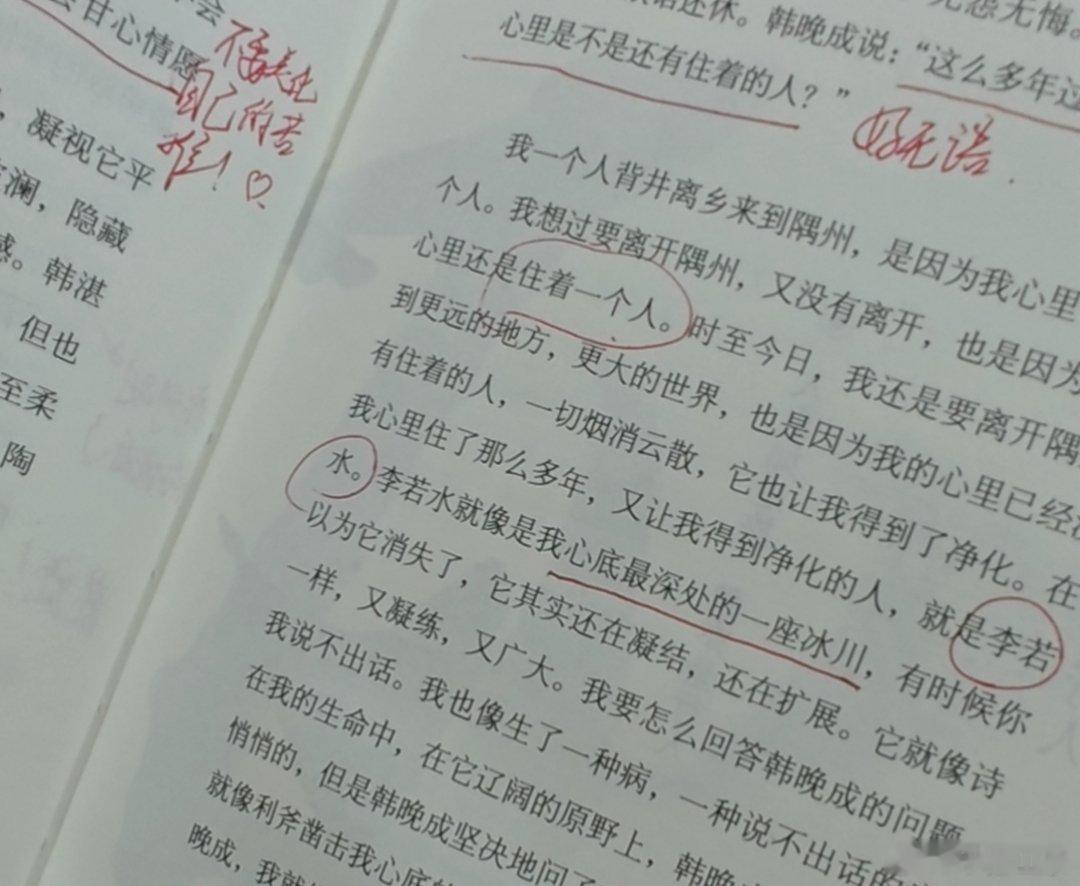 会
会甘心情愿
不要美化
自己的苦
难！♡
，凝视它平
澜，隐藏
感。韩湛
但也
至柔
陶
无怨无悔。
话还休。韩晚成说：“这么多年过
心里是不是还有住着的人？”
好无语.
我一个人背井离乡来到隅州，是因为我心里
个人。我想过要离开隅州，又没有离开，也是因为
心里还是住着一个人。时至今日，我还是要离开隅
到更远的地方，更大的世界，也是因为我的心里已经
有住着的人，一切烟消云散，它也让我得到了净化。在
我心里住了那么多年，又让我得到净化的人，就是李若
水。李若水就像是我心底最深处的一座冰川，有时候你
以为它消失了，它其实还在凝结，还在扩展。它就像诗
一样，又凝练，又广大。我要怎么回答韩晚成的问题
我说不出话。我也像生了一种病，一种说不出话的
在我的生命中，在它辽阔的原野上，韩晚
悄悄的，但是韩晚成坚决地问了
就像利斧凿击我心底的
晚成，我就